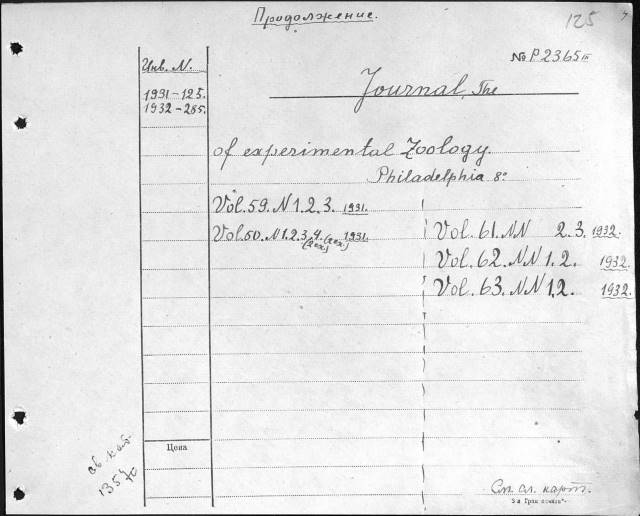 Продолжение.
125
Инв. N.
№ P 2365 III
1931-125.
1932-285.
Journal, The
of experimental Zoology.
Philadelphia 8°
Vol. 59. N 1. 2. 3. 1931.
Vol. 60. N 1. 2. 3. 4. (2 ex.) 1931.
Vol. 61. NN 2. 3. 1932.
Vol. 62. NN 1. 2. 1932.
Vol. 63. NN 1. 2. 1932.
Цена
См. сл. карт.